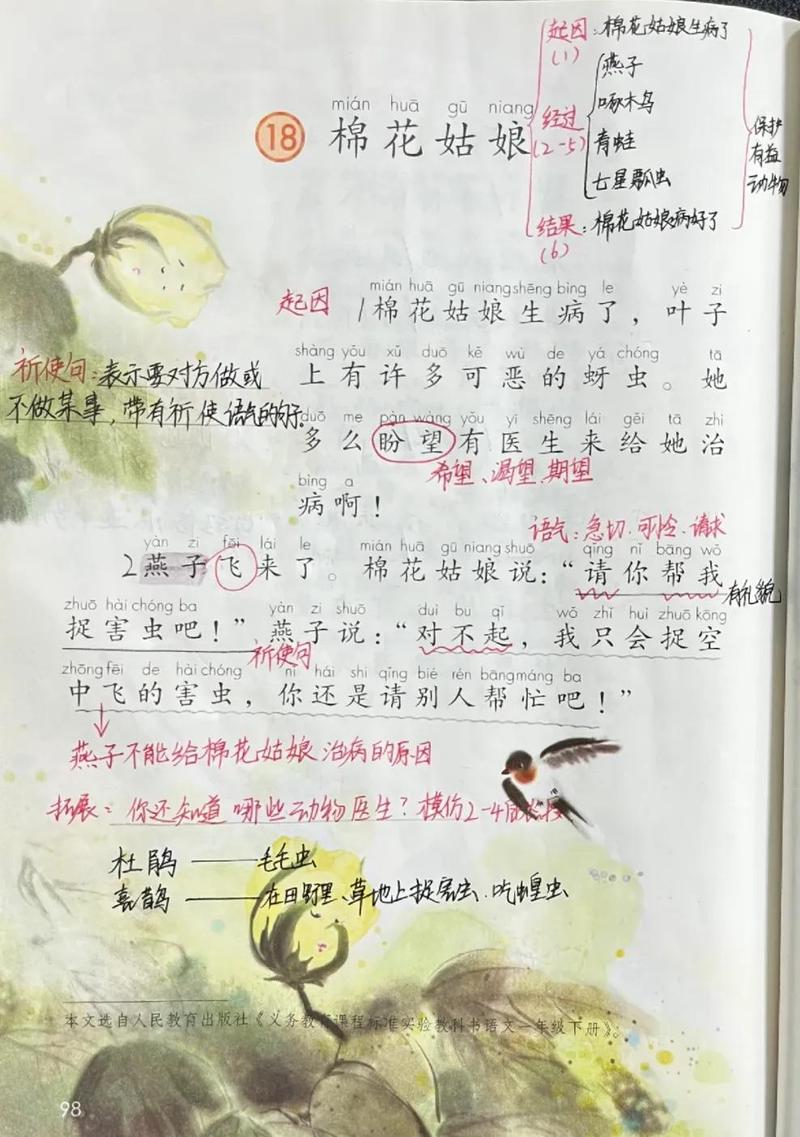 mián huā gū niang
18 棉花姑娘
起因：棉花姑娘生病了
(1)
经过
(2-5)
燕子
啄木鸟
青蛙
七星瓢虫
结果：棉花姑娘病好了
(6)
保护
有益
动物
起因
mián huā gū niang shēng bìng le yè zi
1棉花姑娘生病了，叶子
shàng yǒu xǔ duō kě wù de yá chóng tā
上有许多可恶的蚜虫。她
duō me pàn wàng yǒu yī shēng lái gěi tā zhì
多么盼望有医生来给她治
希望、渴望、期望
bìng a
病啊！
祈使句：表示要对方做或
不做某事，带有祈使语气的句子。
语气：急切、可怜、请求
yàn zi fēi lái le mián huā gū niang shuō qǐng nǐ bāng wǒ
2燕子飞来了。棉花姑娘说：“请你帮我
有礼貌
zhuō hài chóng ba yàn zi shuō duì bu qǐ wǒ zhǐ huì zhuō kōng
捉害虫吧！”燕子说：“对不起，我只会捉空
祈使句
zhōng fēi de hài chóng nǐ hái shi qǐng bié rén bāng máng ba
中飞的害虫，你还是请别人帮忙吧！”
燕子不能给棉花姑娘治病的原因
拓展：你还知道哪些动物医生？模仿2-4自然段
杜鹃——毛毛虫
喜鹊——在田野里、草地上捉害虫、吃蝗虫
本文选自人民教育出版社《义务教育课程标准实验教科书语文一年级下册》。
98